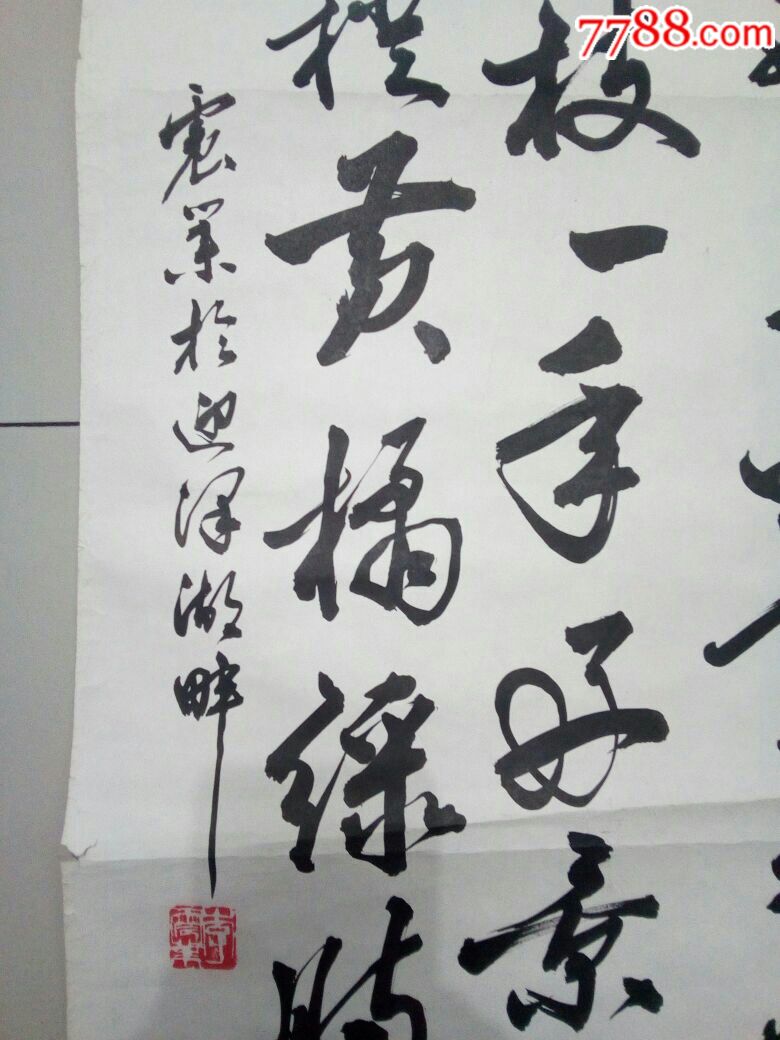 7788.com
枝一年好景
橙黄橘绿时
震業於迎泽湖畔